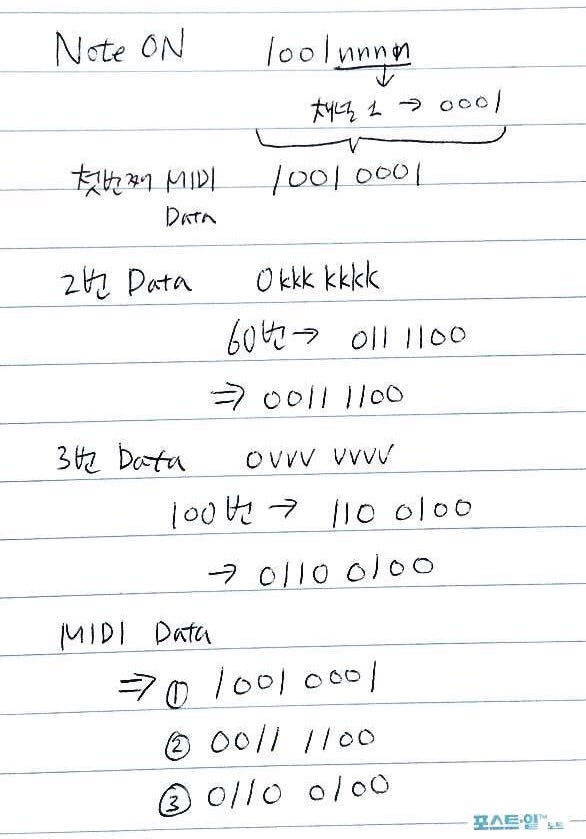 Note ON 1001nnnn
↓
채널 1 → 0001
첫번째 MIDI 1001 0001
Data
2번 Data 0kkk kkkk
60번 → 011 1100
⇒ 0011 1100
3번 Data 0vvv vvvv
100번 → 110 0100
→ 0110 0100
MIDI Data
⇒ ① 1001 0001
② 0011 1100
③ 0110 0100
포스트·잇™ 노트